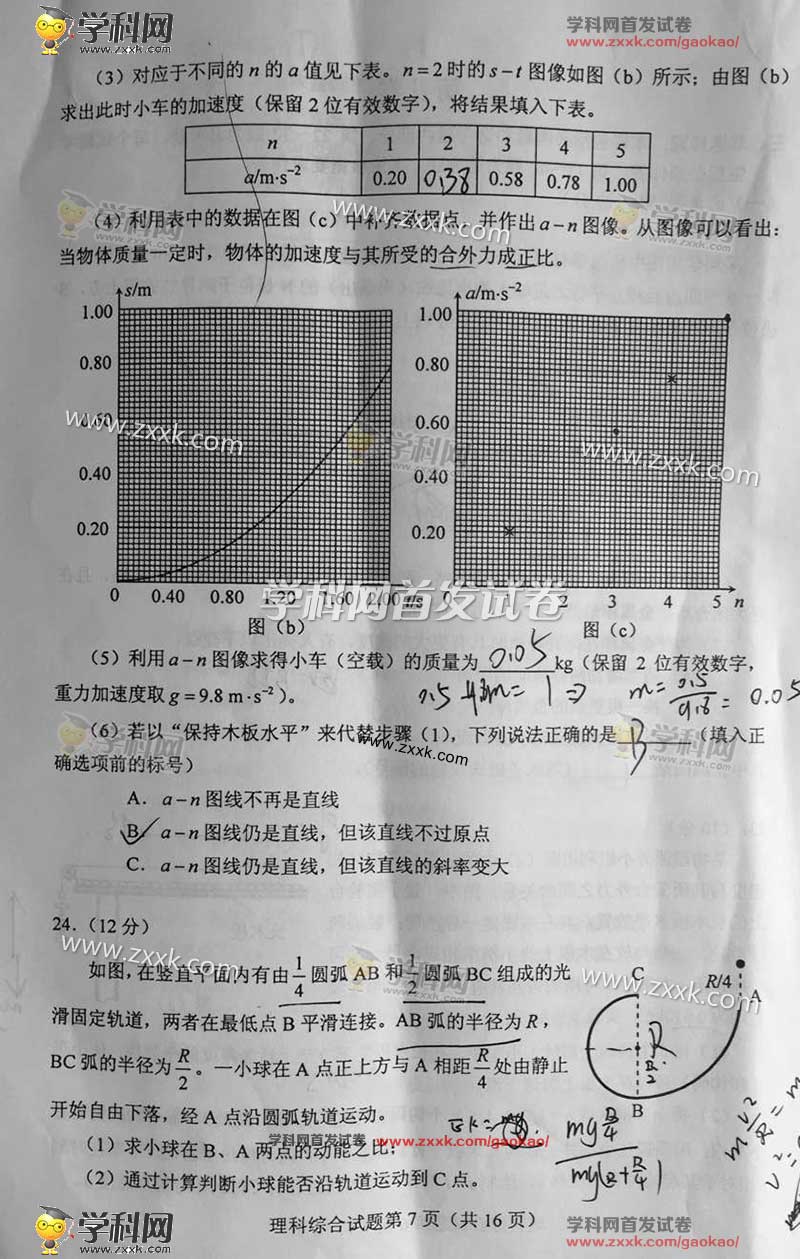 学科网
www.zxxk.com
学科网首发试卷
www.zxxk.com/gaokao/
(3) 对应于不同的 n 的 a 值见下表。n=2 时的 s-t 图像如图 (b) 所示；由图 (b)
求出此时小车的加速度 (保留 2 位有效数字)，将结果填入下表。
n 1 2 3 4 5
a/m·s⁻² 0.20 0.38 0.58 0.78 1.00
(4) 利用表中的数据在图 (c) 中补齐数据点，并作出 a-n 图像。从图像可以看出：
当物体质量一定时，物体的加速度与其所受的合外力成正比。
s/m
1.00
0.80
0.60
0.40
0.20
0 0.40 0.80 1.20 1.60 2.00 t/s
图 (b)
a/m·s⁻²
1.00
0.80
0.60
0.40
0.20
0 2 3 4 5 n
图 (c)
www.zxxk.com
www.zxxk.com
www.zxxk.com
学科网
学科网首发试卷
(5) 利用 a-n 图像求得小车 (空载) 的质量为 0.05 kg (保留 2 位有效数字，
重力加速度取 g=9.8 m·s⁻²)。
m= 0.05
(6) 若以“保持木板水平”来代替步骤 (1)，下列说法正确的是 B (填入正
确选项前的标号)
www.zxxk.com
A. a-n 图线不再是直线
B. a-n 图线仍是直线，但该直线不过原点
C. a-n 图线仍是直线，但该直线的斜率变大
24. (12 分)
如图,在竖直平面内有由 1/4 圆弧 AB 和 1/2 圆弧 BC 组成的光
滑固定轨道，两者在最低点 B 平滑连接。AB 弧的半径为 R，
BC 弧的半径为 R/2。一小球在 A 点正上方与 A 相距 R/4 处由静止
开始自由下落，经 A 点沿圆弧轨道运动。
(1) 求小球在 B、A 两点的动能之比；
(2) 通过计算判断小球能否沿轨道运动到 C 点。
C
R/4
A
R
R/2
B
www.zxxk.com
www.zxxk.com
学科网首发试卷 www.zxxk.com/gaokao/
理科综合试题第 7 页 (共 16 页)
学科网
www.zxxk.com
学科网首发试卷
www.zxxk.com/gaokao/